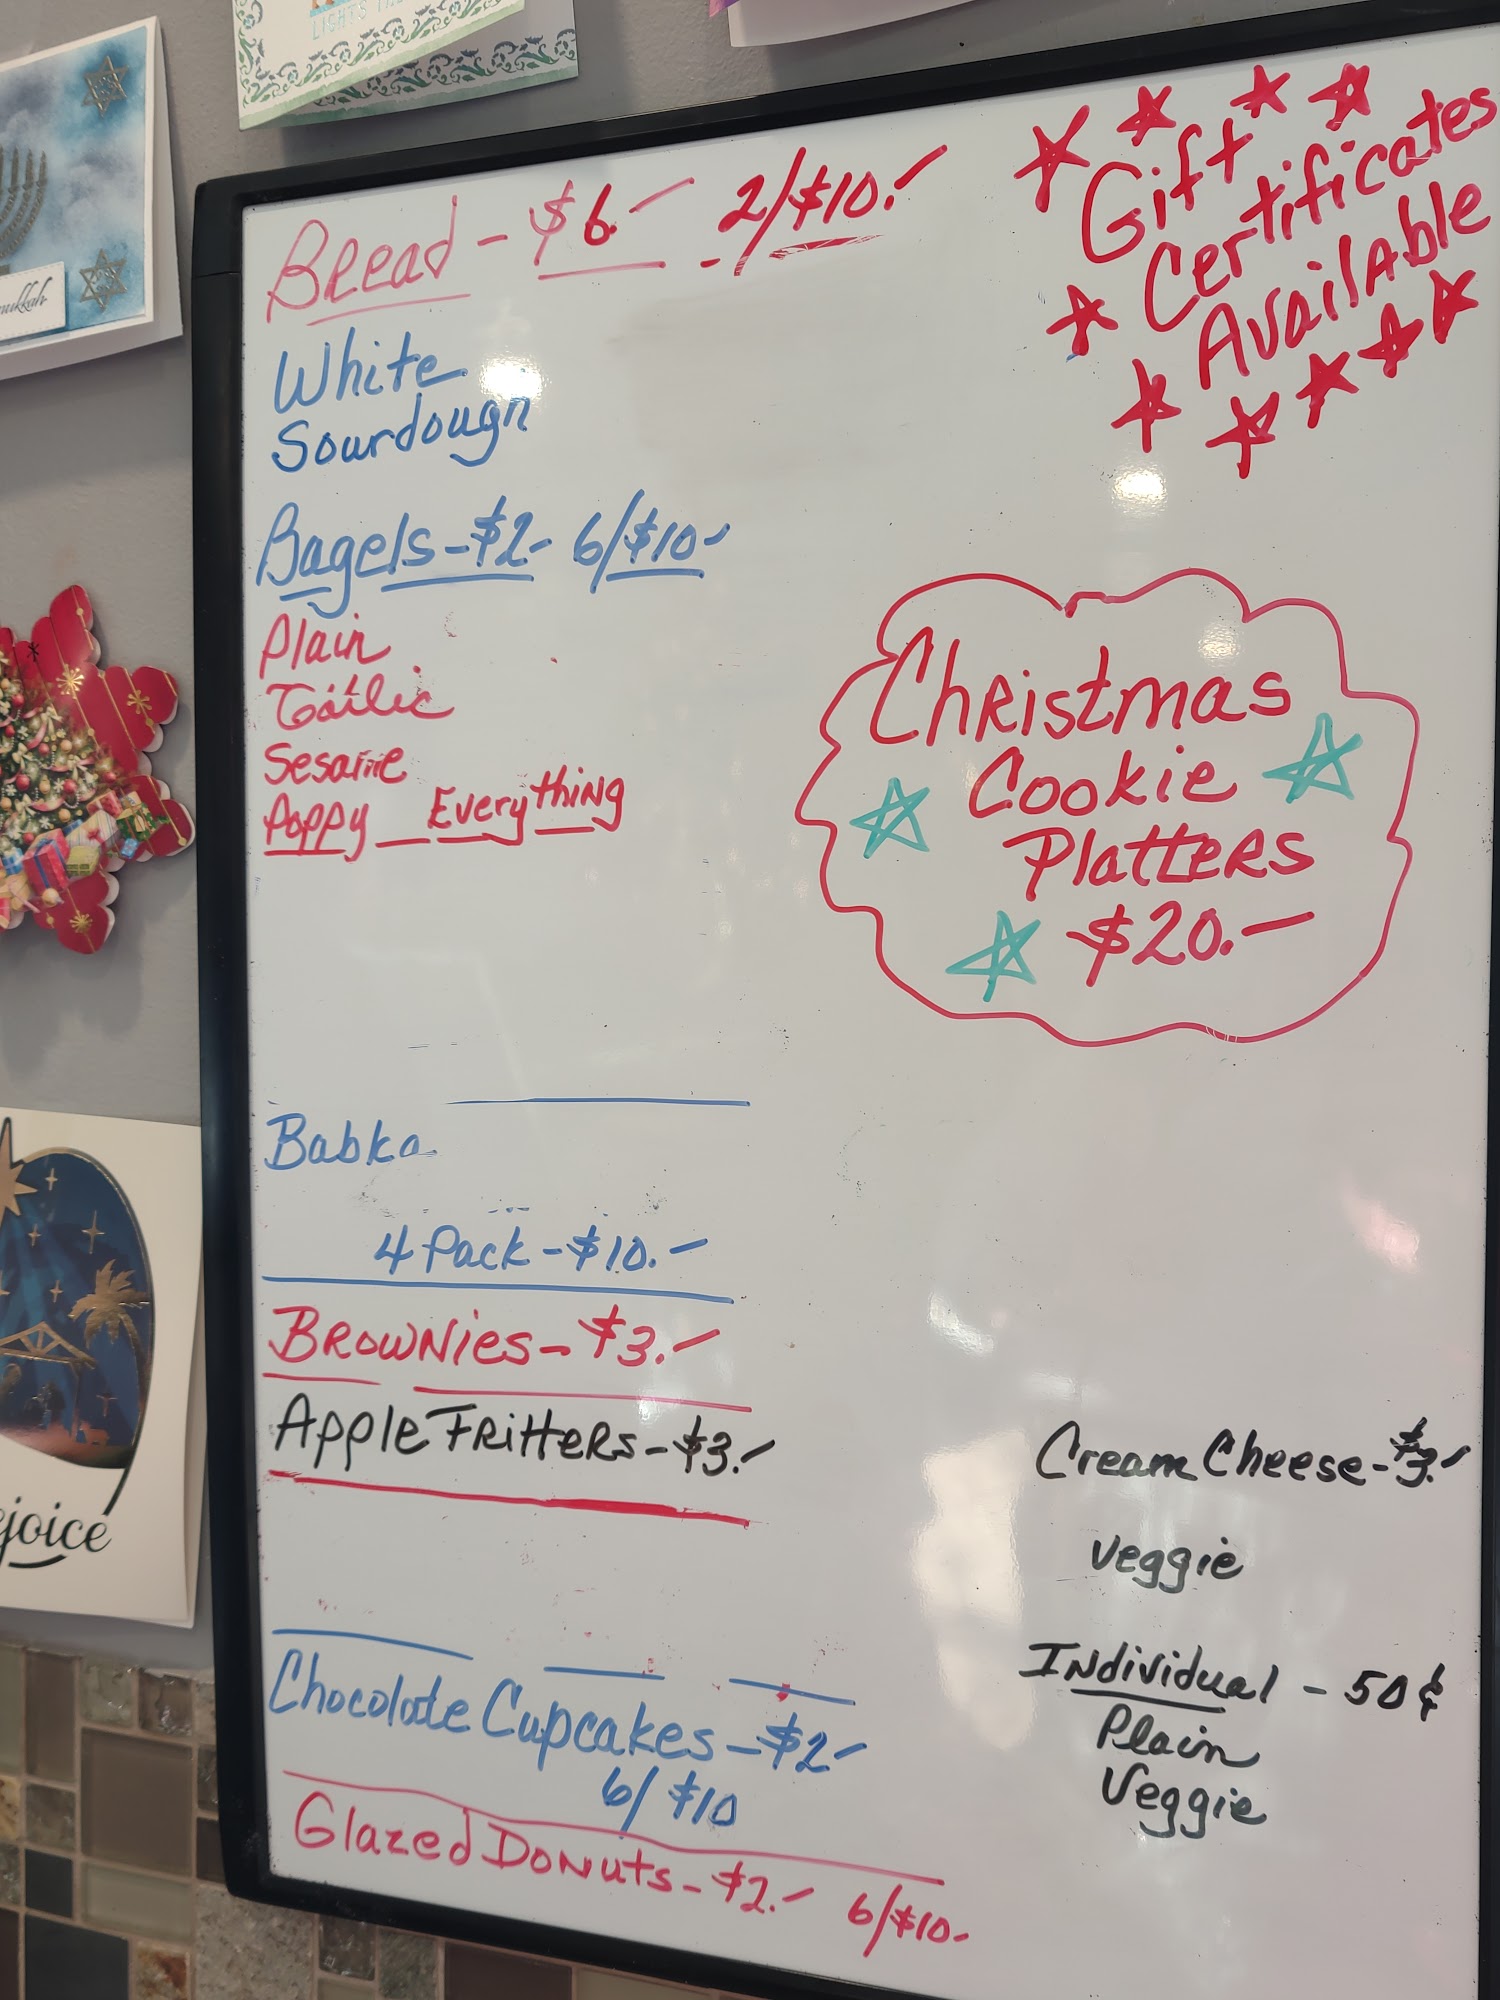 LIGHTS THE
Bread - $6.- - 2/$10.-
White
Sourdough
Bagels - $2- 6/$10-
Plain
Garlic
Sesame
Poppy Everything
Babka
4 Pack - $10.-
Brownies - $3.-
Apple Fritters - $3.-
Chocolate Cupcakes - $2-
6/ $10
Glazed Donuts - $2.- 6/$10.-
Gift
Certificates
Available
Christmas
Cookie
Platters
$20.-
Cream Cheese - $3.-
Veggie
Individual - 50¢
Plain
Veggie